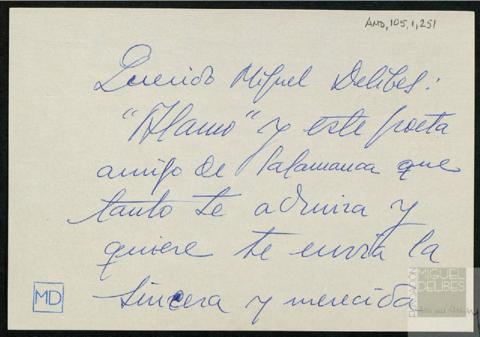 AMD,105,1,251
Querido Miguel Delibes:
"Álamo" y este poeta
amigo de Salamanca que
tanto te admira y
quiere te envía la
sincera y merecida
MD
FUNDACIÓN
MIGUEL
DELIBES